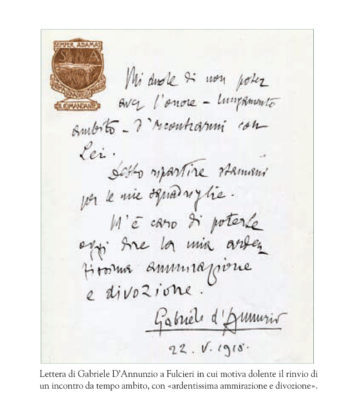 SEMPER ADAMAS
IL COMANDANTE
Mi duole di non poter
aver l'onore – lungamente
ambito – d'incontrarmi con
Lei.
Debbo ripartire stamani
per le mie squadriglie.
M'è caro di poterle
oggi dire la mia arden
tissima ammirazione
e divozione.
Gabriele d'Annunzio
22. V. 1918.
Lettera di Gabriele D'Annunzio a Fulcieri in cui motiva dolente il rinvio di
un incontro da tempo ambito, con «ardentissima ammirazione e divozione».